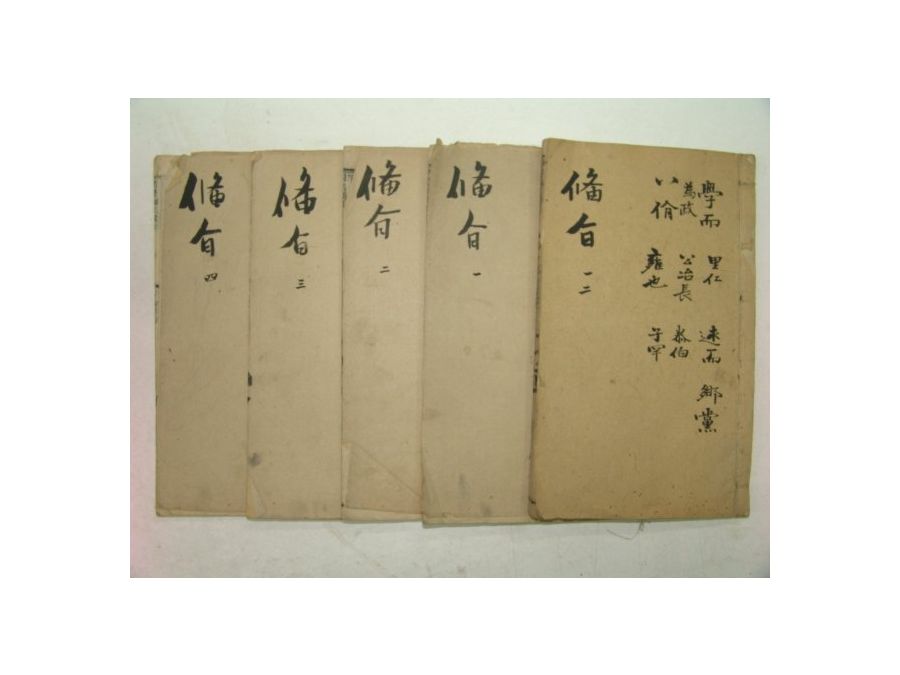 學而 里仁 述而 鄉黨
為政 公冶長 泰伯
八佾 雍也 子罕
俻旨 一二
俻旨 一
俻旨 二
俻旨 三
俻旨 四